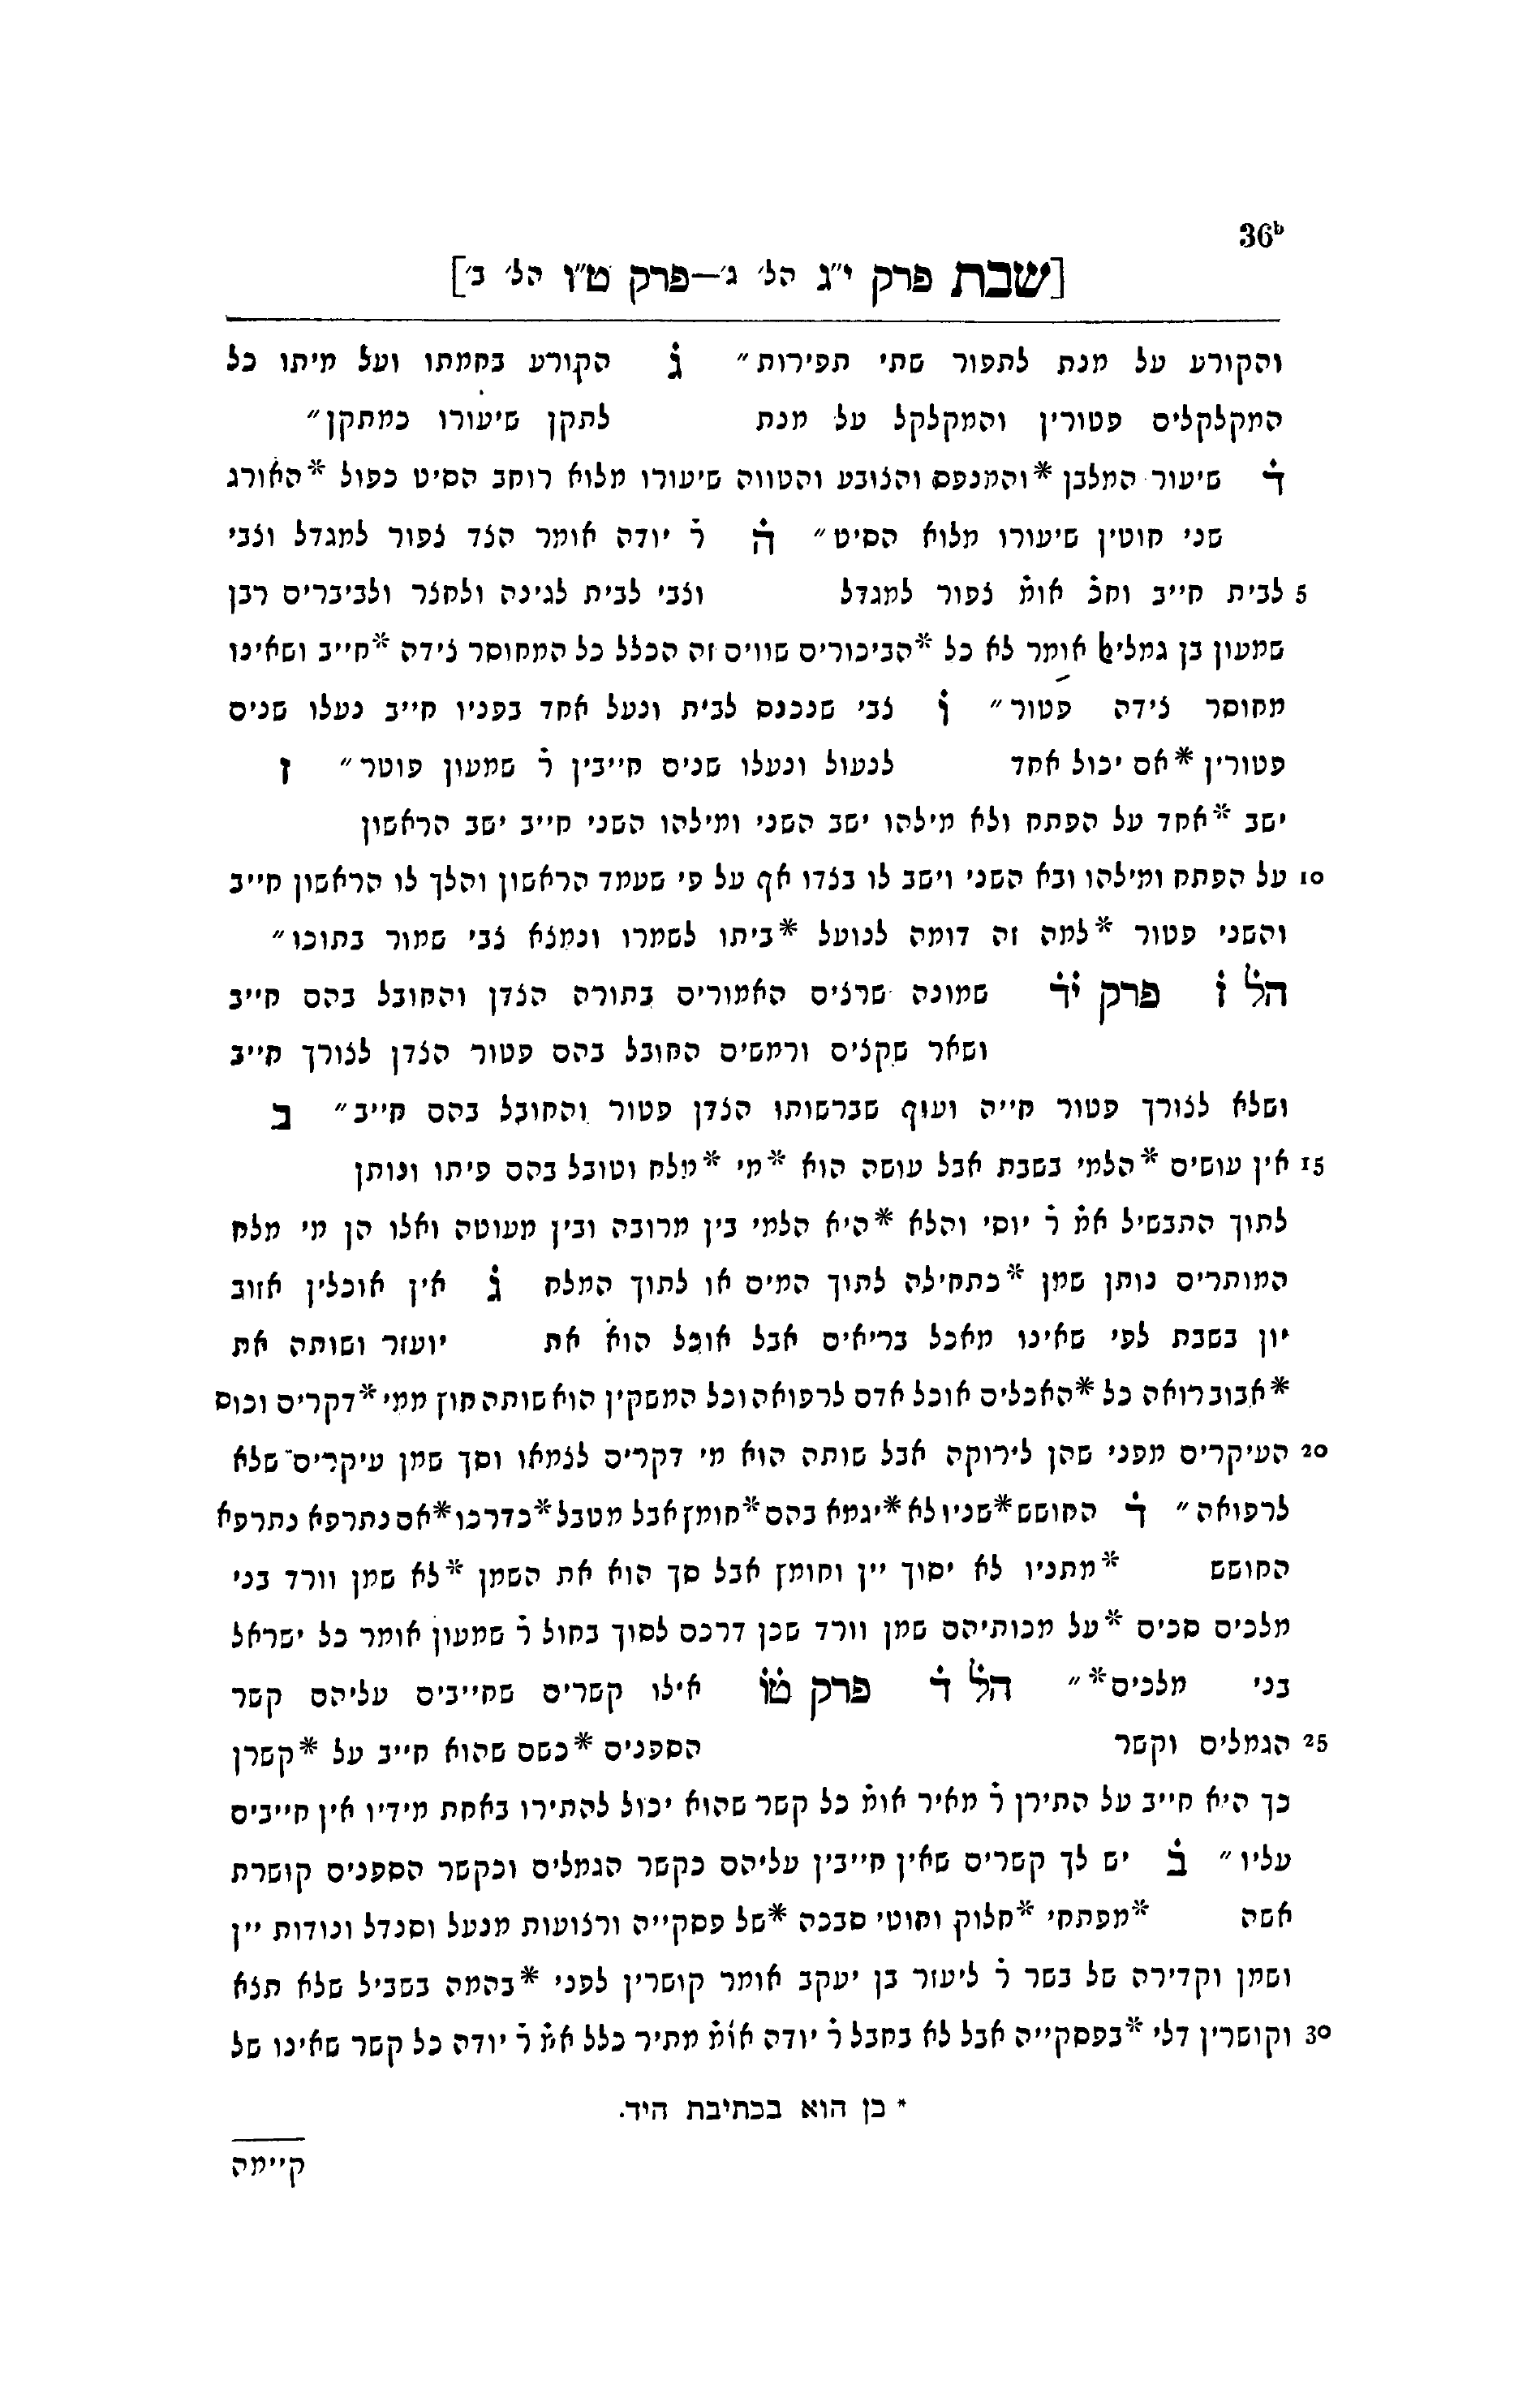 36b
[שבת פרק י״ג הל׳ ג׳—פרק ט״ו הל׳ ב׳]
והקורע על מנת לתפור שתי תפירות״ ג̇ הקורע בחמתו ועל מיתו כל
המקלקלים פטורין והמקלקל על מנת לתקן שיעורו כמתקן״
ד̇ שיעור המלבן *והמנפס והצובע והטווה שיעורו מלוא רוחב הסיט כפול *האורג
שני חוטין שיעורו מלוא הסיט״ ה̇ ר̇ יודה אומר הצד צפור למגדל וצבי
5 לבית חייב וחכ̇ אומ̇ צפור למגדל וצבי לבית לגינה ולחצר ולביברים רבן
שמעון בן גמליאל אומר לא כל *הביכורים שווים זה הכלל כל המחוסר צידה *חייב ושאינו
מחוסר צידה פטור״ ו̇ צבי שנכנס לבית ונעל אחד בפניו חייב נעלו שנים
פטורין *אם יכול אחד לנעול ונעלו שנים חייבין ר̇ שמעון פוטר״ ז
ישב *אחד על הפתח ולא מילהו ישב השני ומילהו השני חייב ישב הראשון
10 על הפתח ומילהו ובא השני וישב לו בצדו אף על פי שעמד הראשון והלך לו הראשון חייב
והשני פטור *למה זה דומה לנועל *ביתו לשמרו ונמצא צבי שמור בתוכו״
הל̇ ז̇ פרק י̇ד̇ שמונה שרצים האמורים בתורה הצדן והחובל בהם חייב
ושאר שקצים ורמשים החובל בהם פטור הצדן לצורך חייב
ושלא לצורך פטור חייה ועוף שברשותו הצדן פטור והחובל בהם חייב״ ב
15 אין עושים *הלמי בשבת אבל עושה הוא *מי *מלח וטובל בהם פיתו ונותן
לתוך התבשיל אמ̇ ר̇ יוסי והלא *היא הלמי בין מרובה ובין מעוטה ואלו הן מי מלח
המותרים נותן שמן *כתחילה לתוך המים או לתוך המלח ג̇ אין אוכלין אזוב
יון בשבת לפי שאינו מאכל בריאים אבל אוכל הוא את יועזר ושותה את
*אבוב רואה כל *האכלים אוכל אדם לרפואה וכל המשקין הוא שותה חוץ ממי *דקרים וכוס
20 העיקרים מפני שהן לירוקה אבל שותה הוא מי דקרים לצמאו וסך שמן עיקרים שלא
לרפואה״ ד̇ החושש *שניו לא *יגמא בהם *חומץ אבל מטבל *כדרכו *אם נתרפא נתרפא
החושש *מתניו לא יסוך יין וחומץ אבל סך הוא את השמן *לא שמן וורד בני
מלכים סכים *על מכותיהם שמן וורד שכן דרכם לסוך בחול ר̇ שמעון אומר כל ישראל
בני מלכים*״ הל̇ ד̇ פרק ט̇ו̇ אילו קשרים שחייבים עליהם קשר
25 הגמלים וקשר הספנים *כשם שהוא חייב על *קשרן
כך היא חייב על התירן ר̇ מאיר אומ̇ כל קשר שהוא יכול להתירו באחת מידיו אין חייבים
עליו״ ב̇ יש לך קשרים שאין חייבין עליהם כקשר הגמלים וכקשר הספנים קושרת
אשה *מפתחי *חלוק וחוטי סבכה *של פסקייה ורצועות מנעל וסנדל ונודות יין
ושמן וקדירה של בשר ר̇ ליעזר בן יעקב אומר קושרין לפני *בהמה בשביל שלא תצא
30 וקושרין דלי *בפסקייה אבל לא בחבל ר̇ יודה אומ̇ מתיר כלל אמ̇ ר̇ יודה כל קשר שאינו של
* כן הוא בכתיבת היד.
קיימה